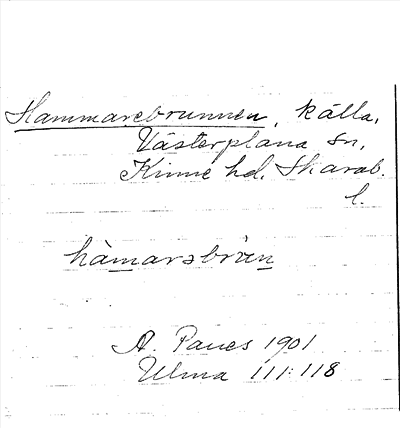 Hammarebrunnen, källa,
Västerplana sn,
Kinne hd. Skarab.
l.
hàmarsbrùn
A. Paues 1901
Ulma 111:118